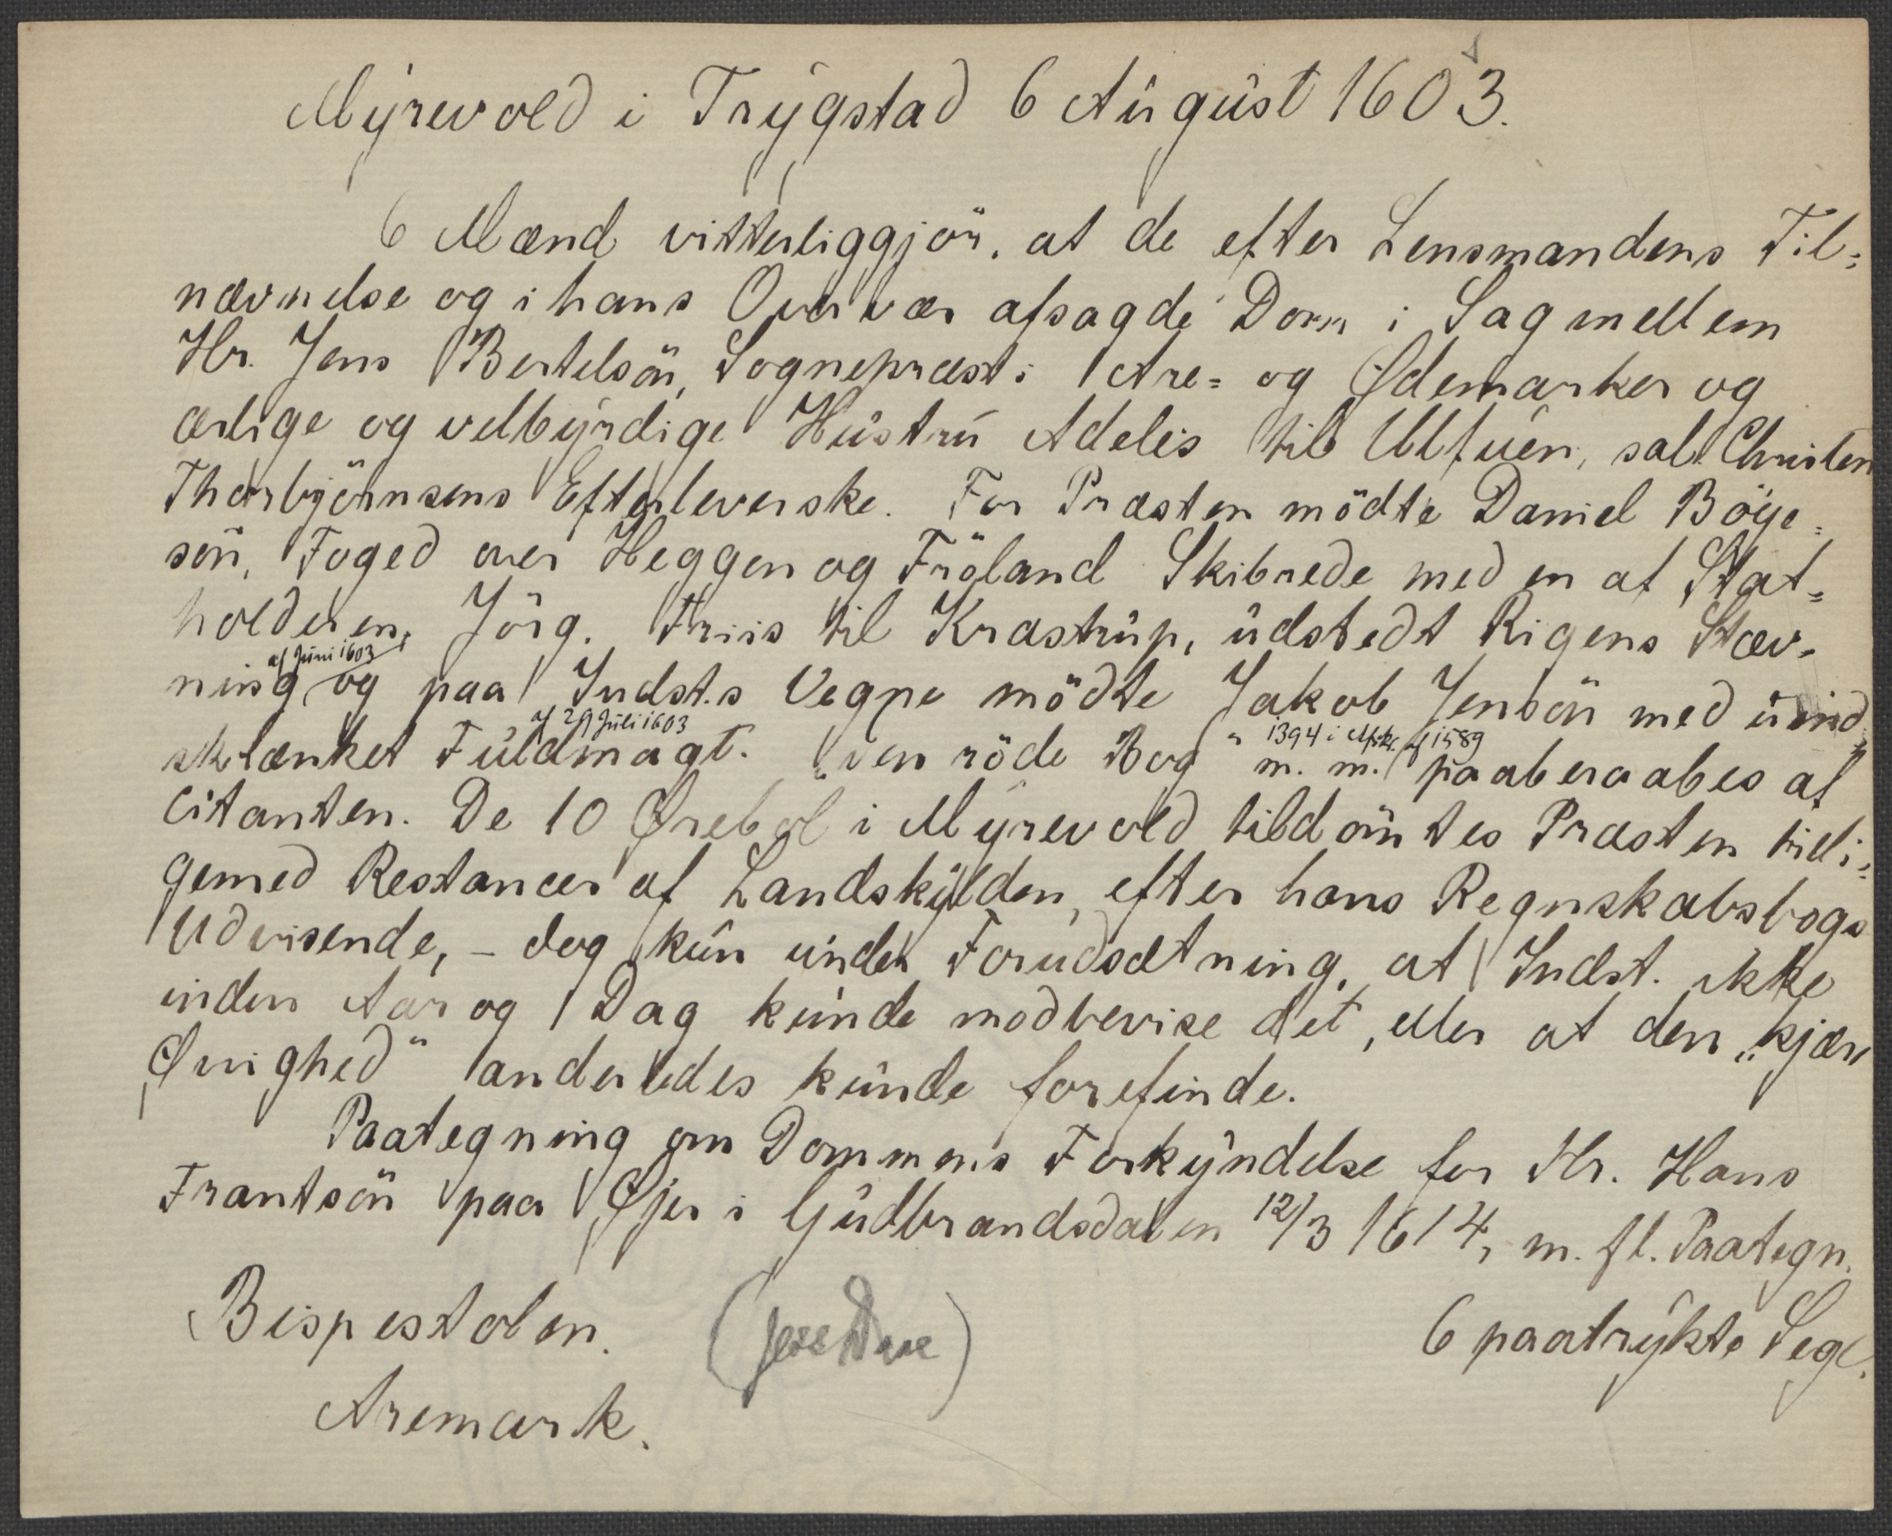 Myrevold i Trygstad 6 August 1603.
6 Mænd vitterliggjör, at de efter Lensmandens Til=
nævnelse og i hans Overvær afsagde Dom i Sag mellem
Hr. Jens Bertelsön, Sognepræst i Are= og Ødemarker og
ærlige og velbyrdige Hustru Adelis til Ulfuen, sal. Christen
Thorbjörnsens Efterleverske. For Præsten mödte Daniel Böye=
sön, Foged over Heggen og Fröland Skibrede med en af Stat=
holderen, Jörg. Friis til Krastrup, udstedt Rigens Stæv=
af Juni 1603
ning og paa Indst.s Vegne mödte Jakob Jensön med uind=
af 29 Juli 1603
skrænket Fuldmagt. „den röde Bog“ m. m. paaberaabes af
1394 i Afskr. af 1589
Citanten. De 10 Ørebol i Myrevold tildömtes Præsten tilli=
gemed Restancer af Landskylden, efter hans Regnskabsbogs
Udvisende, – dog kun under Forudsætning, at Indst. ikke
inden Aar og Dag kunde modbevise det, eller at den „kjære
Øvrighed“ anderledes kunde forefinde.
Paategning om Dommens Forkyndelse for Hr. Hans
Frantsön paa Øjer i Gudbrandsdalen 12/3 1614, m. fl. Paategn.
Bispestolen.
6 paatrykte Segl.
Aremark.